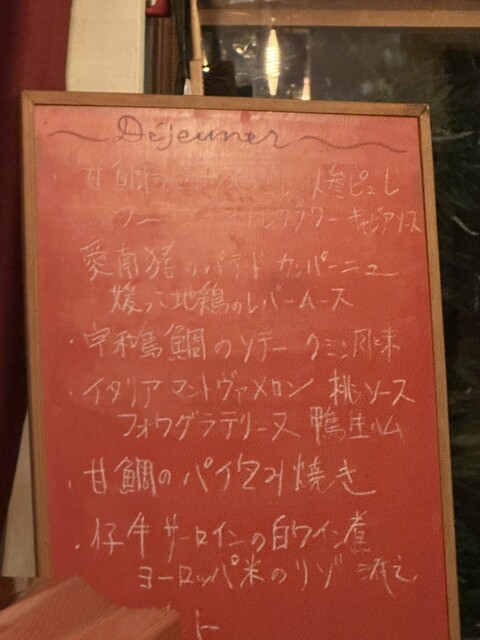 Déjeuner
甘鯛の 人参ピュレ
フラワー キャビアソース
愛南猪のパテド カンパーニュ
媛っこ地鶏のレバームース
・宇和島鯛のソテー クミン風味
・イタリア マントヴァメロン 桃のソース
フォワグラテリーヌ 鴨生ハム
・甘鯛のパイ包み焼き
・仔牛サーロインの白ワイン煮
ヨーロッパ米のリゾ 添え
ト